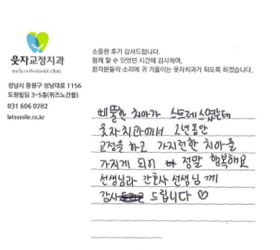 웃자교정치과
smile orthodontic clinic
성남시 중원구 성남대로 1156
도원빌딩 3~5층(위즈노건물)
031 606 0282
letssmile.co.kr
소중한 후기 감사드립니다.
함께 할 수 있었던 시간에 감사하며,
환자분들의 소리에 귀 기울이는 웃자치과가 되도록 하겠습니다.
삐뚤한 치아가 스트레스였는데
웃자치과에서 2년동안
교정을 하고 가지런한 치아를
가지게 되어 정말 행복해요
선생님과 간호사 선생님 께
감사 드립니다 ♡